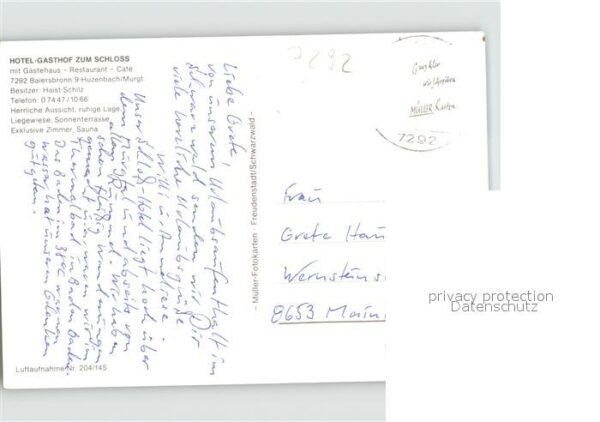 HOTEL-GASTHOF ZUM SCHLOSS
mit Gästehaus - Restaurant - Café
7292 Baiersbronn 9-Huzenbach/Murgt.
Besitzer: Haist-Schilz
Telefon: 0 74 47 / 10 66
Herrliche Aussicht, ruhige Lage,
Liegewiese, Sonnenterrasse,
Exklusive Zimmer, Sauna
7292
Liebe Grete,
von unserem Urlaubsaufenthalt im
Schwarzwald senden wir Dir
viele herzliche Urlaubsgrüße
Willi u. Anneliese
Unser Schloß-Hotel liegt hoch über
dem Murgtal und abseits von
allem. Wir haben
schon fleißig Wanderungen
gemacht u. waren im
Thermalbad in Baden-Baden.
Das Baden im 38°C warmen
Wasser hat unseren
gut getan.
Luftaufnahme Nr. 204/145
- Müller-Fotokarten - Freudenstadt/Schwarzwald -
MÜLLER Karten
7292
Frau
Grete Hau
Wernstein
8653 Main
privacy protection
Datenschutz